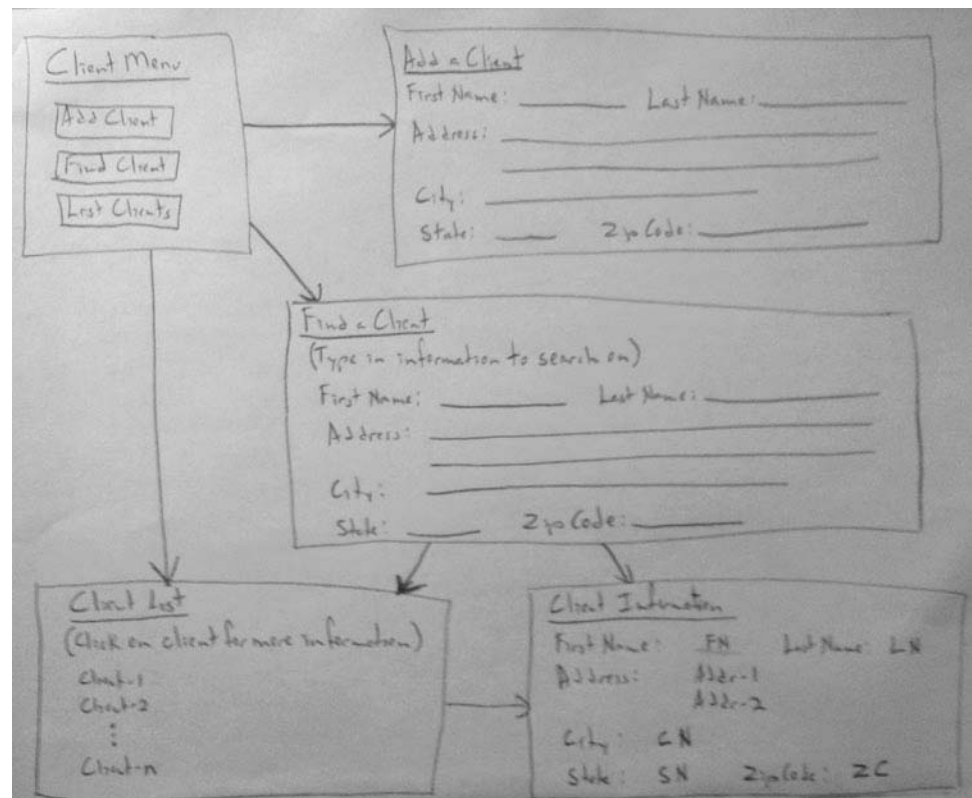 Client Menu
Add Client
Find Client
List Clients
Add a Client
First Name: Last Name:
Address:
City:
State: Zip Code:
Find a Client
(Type in information to search on)
First Name: Last Name:
Address:
City:
State: Zip Code:
Client List
(Click on client for more information)
Client-1
Client-2
⋮
Client-n
Client Information
First Name: FN Last Name: LN
Address: Addr-1
Addr-2
City: CN
State: SN Zip Code: ZC